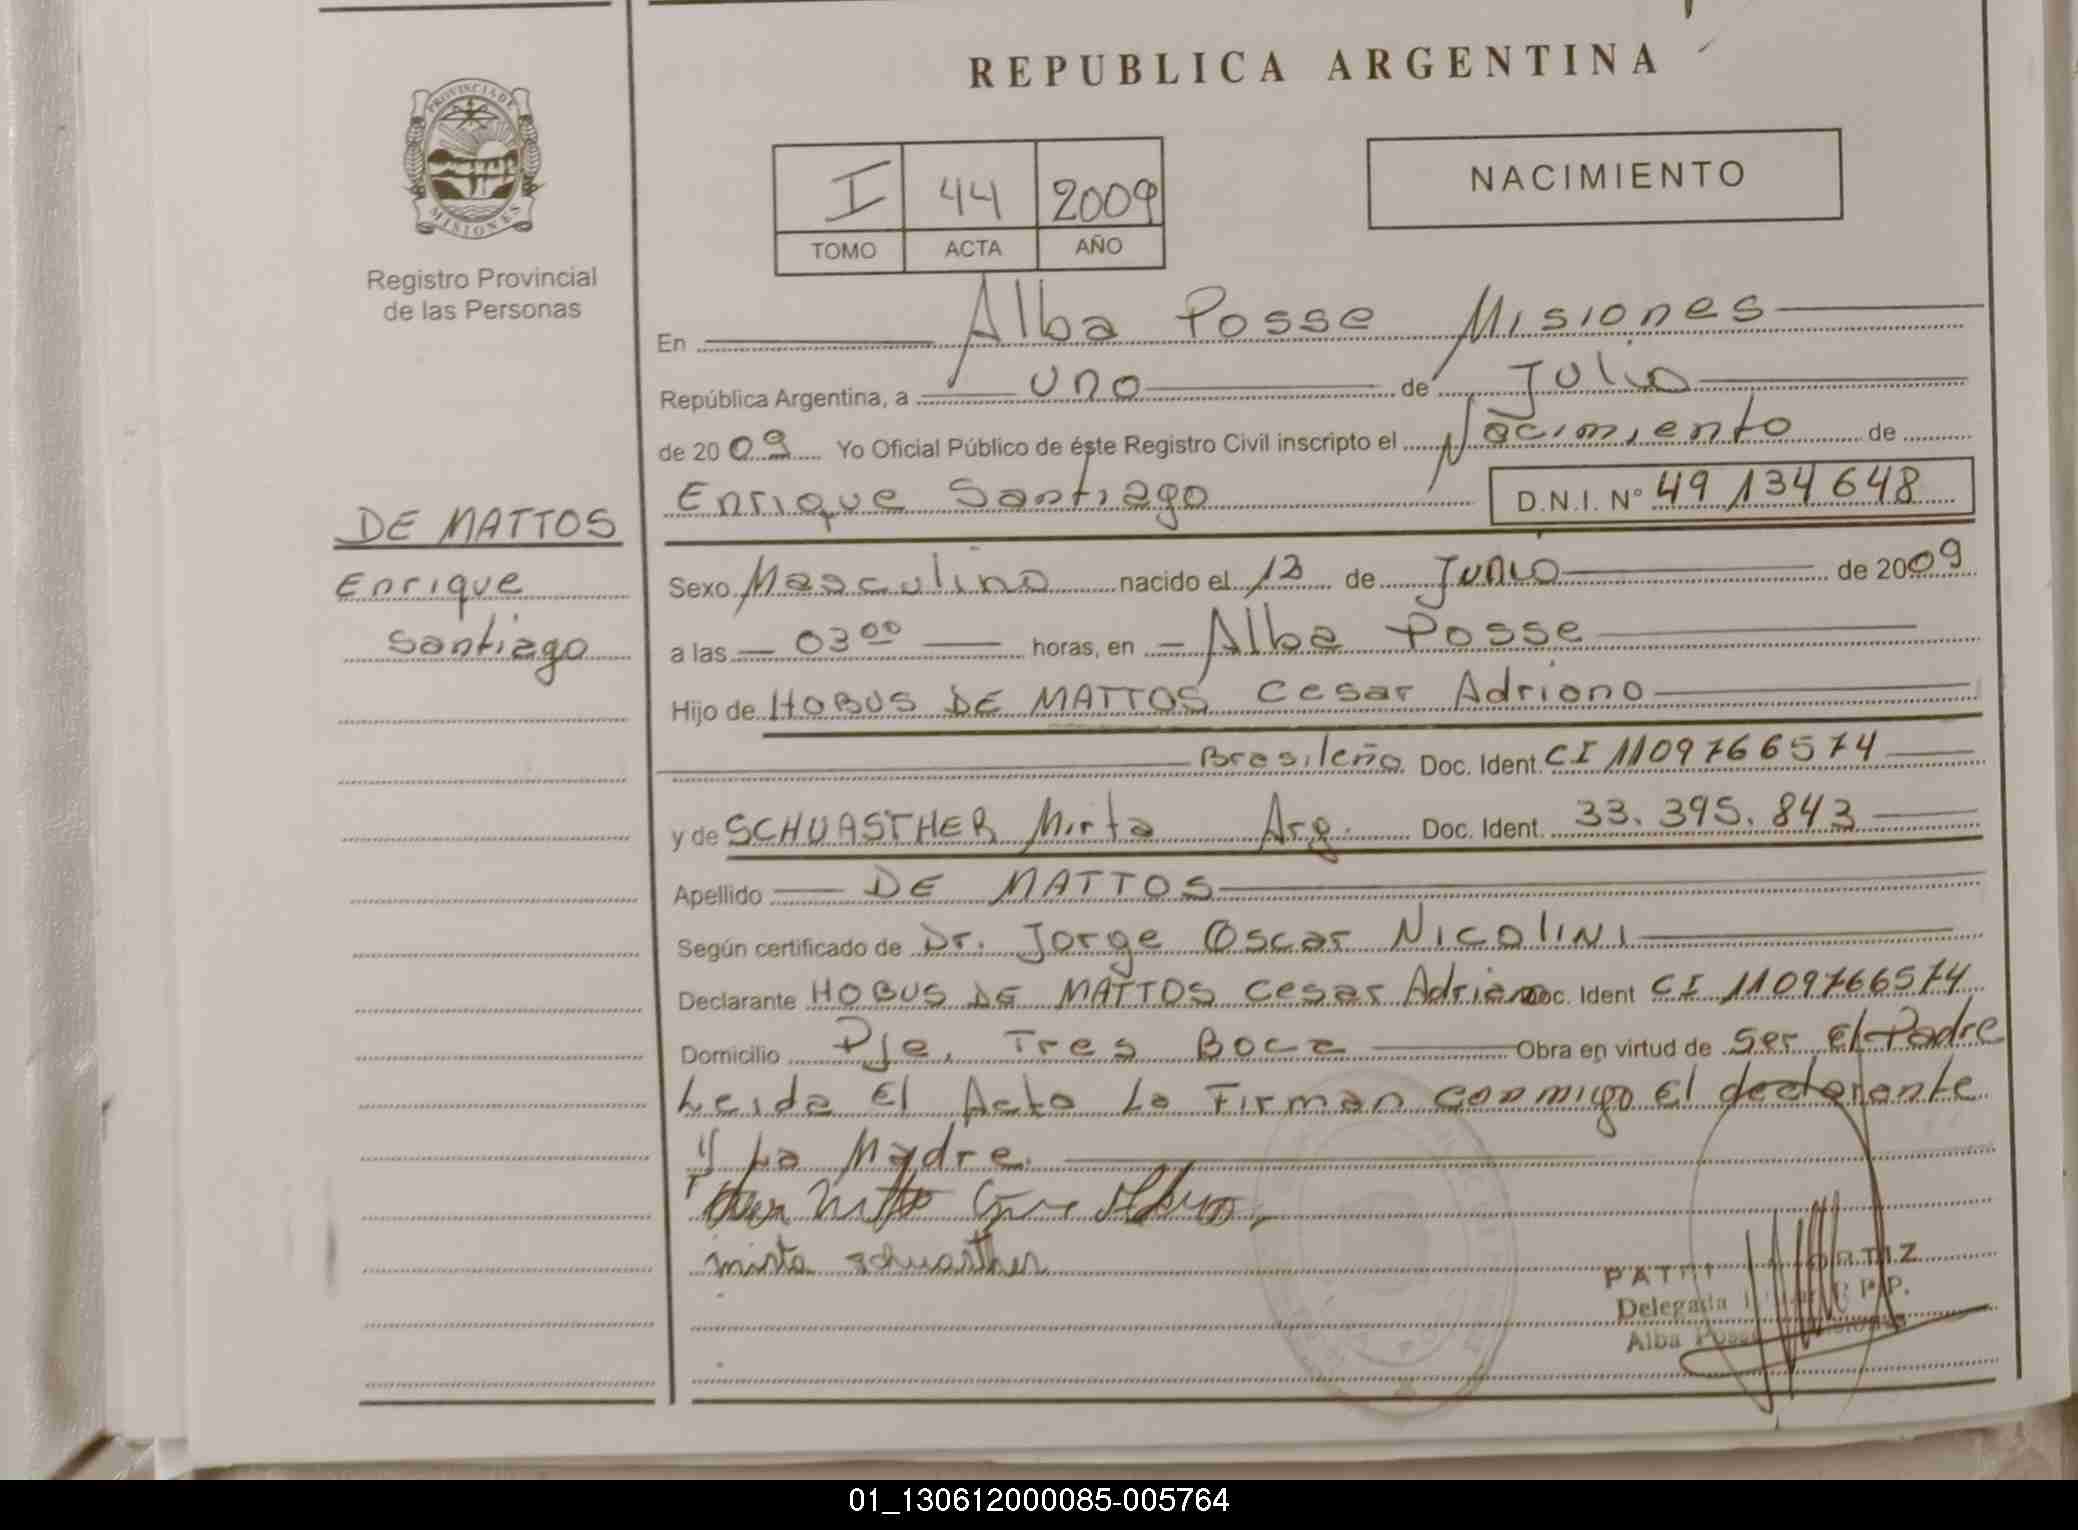 REPUBLICA ARGENTINA
PROVINCIA DE
MISIONES
Registro Provincial
de las Personas
I 44 2009
TOMO ACTA AÑO
NACIMIENTO
En Alba Posse Misiones
República Argentina, a uno de Julio
de 2009 Yo Oficial Público de éste Registro Civil inscripto el Nacimiento de
Enrique Santiago D.N.I. N° 49 134 648
DE MATTOS
Enrique
Santiago
Sexo Masculino nacido el de Junio de 2009
a las 03 00 horas, en Alba Posse
Hijo de HOBUS DE MATTOS Cesar Adriano
Brasileño Doc. Ident. CI 1109766574
y de SCHUASTHER Mirta Arg. Doc. Ident. 33.395.843
Apellido DE MATTOS
Según certificado de Dr. Jorge Oscar NICOLINI
Declarante HOBUS DE MATTOS Cesar Adriano Doc. Ident CI 1109766574
Domicilio Pje. Tres Boca Obra en virtud de Ser El Padre
Leida El Acta La Firman conmigo El declarante
y La Madre.
mirta schuasther
ORTIZ
Delegada
Alba Posse
01_130612000085-005764